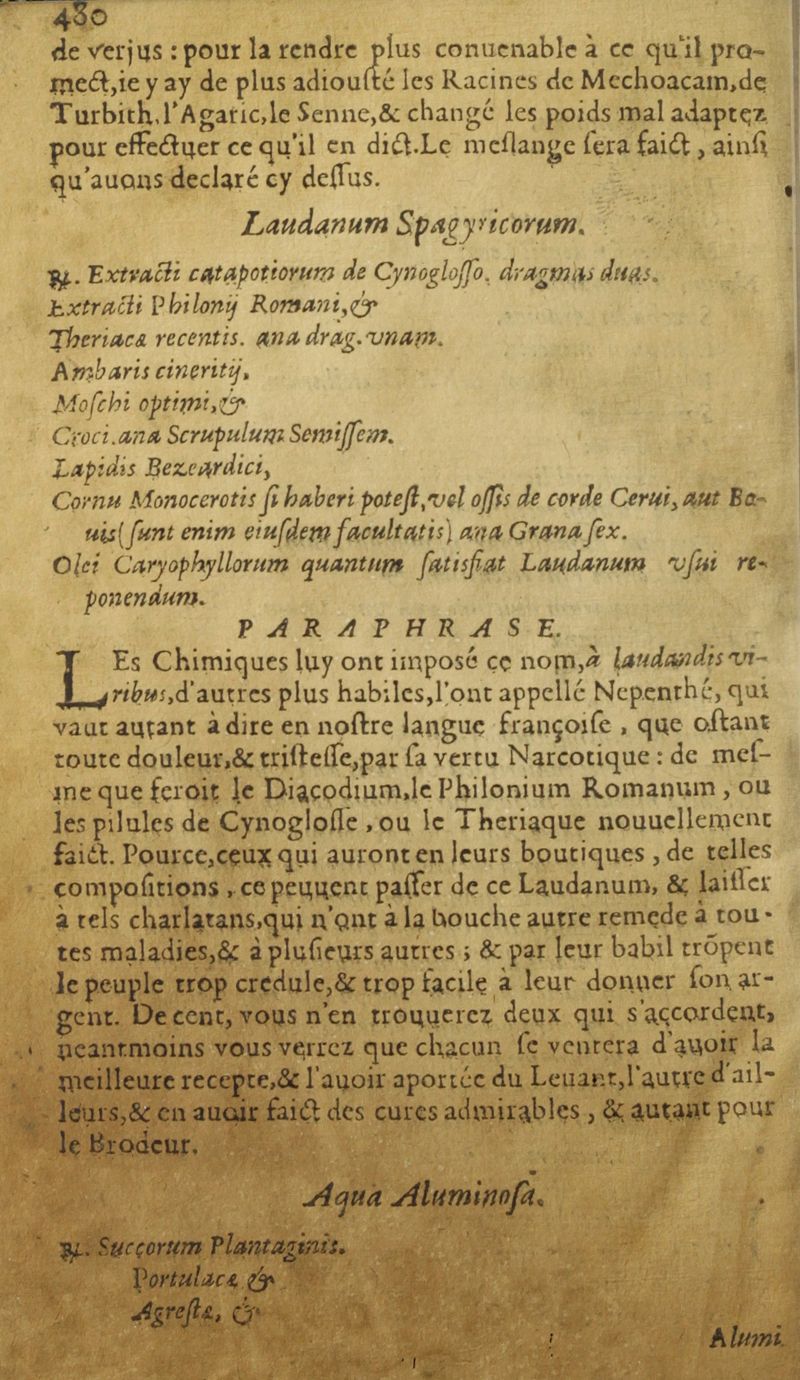 430
de verjus : pour la rendre plus conuenable à ce qu'il pro-
mect, ie y ay de plus adiousté les Racines de Mechoacam, de
Turbith, l'Agaric, le Senne, & changé les poids mal adaptez
pour effectuer ce qu'il en dict. Le meslange sera faict, ainsi
qu'auons declaré cy dessus.
Laudanum Spagyricorum.
℞. Extracti catapotiorum de Cynoglosso. dragmas duas.
Extracti Philonij Romani, &
Theriacæ recentis. ana drag. vnam.
Ambaris cineritij,
Moschi optimi, &
Croci. ana Scrupulum Semissem.
Lapidis Bezeardici,
Cornu Monocerotis si haberi potest, vel ossis de corde Cerui, aut Bo-
uis (sunt enim eiusdem facultatis) ana Grana sex.
Olei Caryophyllorum quantum satisfiat Laudanum vsui re-
ponendum.
PARAPHRASE.
LEs Chimiques luy ont imposé ce nom, à laudandis vi-
ribus, d'autres plus habiles, l'ont appellé Nepenthé, qui
vaut autant à dire en nostre langue françoise, que ostant
toute douleur, & tristesse, par sa vertu Narcotique : de mes-
me que feroit le Diacodium, le Philonium Romanum, ou
les pilules de Cynoglosse, ou le Theriaque nouuellement
faict. Pource, ceux qui auront en leurs boutiques, de telles
compositions, ce peuuent passer de ce Laudanum, & laisser
à tels charlatans, qui n'ont à la bouche autre remede à tou-
tes maladies, & à plusieurs autres ; & par leur babil trõpent
le peuple trop credule, & trop facile à leur donner son ar-
gent. De cent, vous n'en trouuerez deux qui s'accordent,
neantmoins vous verrez que chacun se ventera d'auoir la
meilleure recepte, & l'auoir aportée du Leuant, l'autre d'ail-
leurs, & en auoir faict des cures admirables, & autant pour
le Brodeur.
Aqua Aluminosa.
℞. Succorum Plantaginis.
Portulacæ &
Agrestæ, &
Alumi